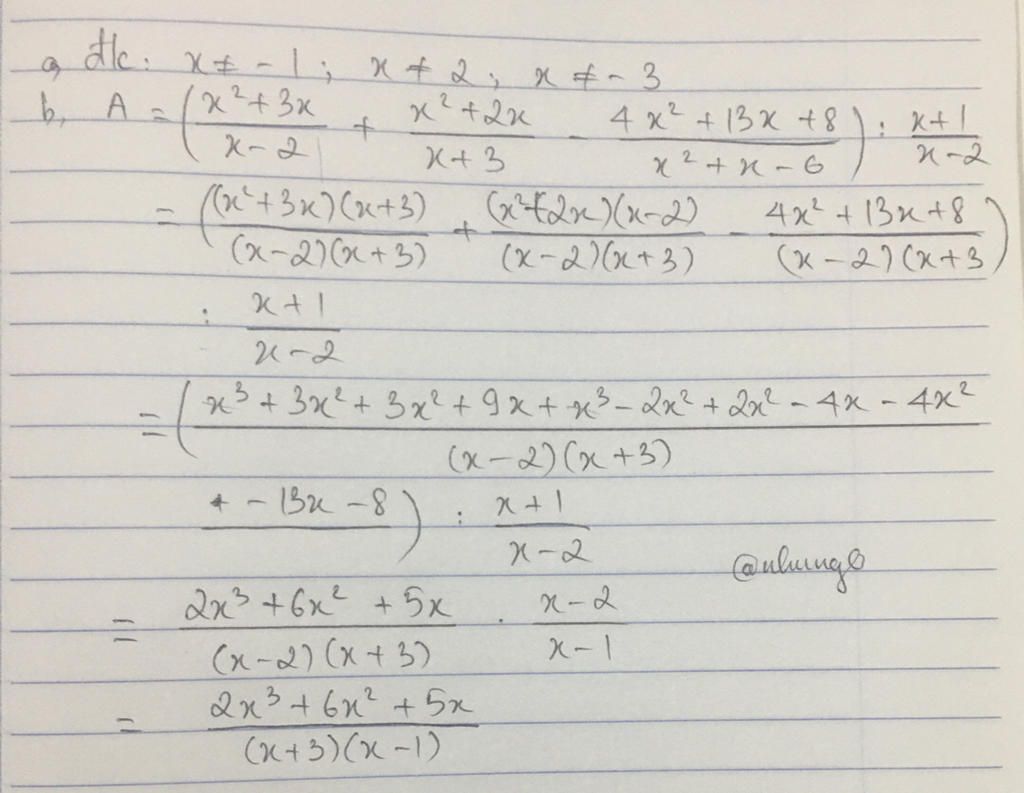 a, đk: x ≠ -1; x ≠ 2; x ≠ -3
b, A = ( (x² + 3x)/(x - 2) + (x² + 2x)/(x + 3) - (4x² + 13x + 8)/(x² + x - 6) ) : (x + 1)/(x - 2)
= ( ((x² + 3x)(x + 3))/((x - 2)(x + 3)) + ((x² + 2x)(x - 2))/((x - 2)(x + 3)) - (4x² + 13x + 8)/((x - 2)(x + 3) )
: (x + 1)/(x - 2)
= ( (x³ + 3x² + 3x² + 9x + x³ - 2x² + 2x² - 4x - 4x²)/((x - 2)(x + 3))
- 13x - 8 ) : (x + 1)/(x - 2)
@nhung8
= (2x³ + 6x² + 5x)/((x - 2)(x + 3)) . (x - 2)/(x - 1)
= (2x³ + 6x² + 5x)/((x + 3)(x - 1))